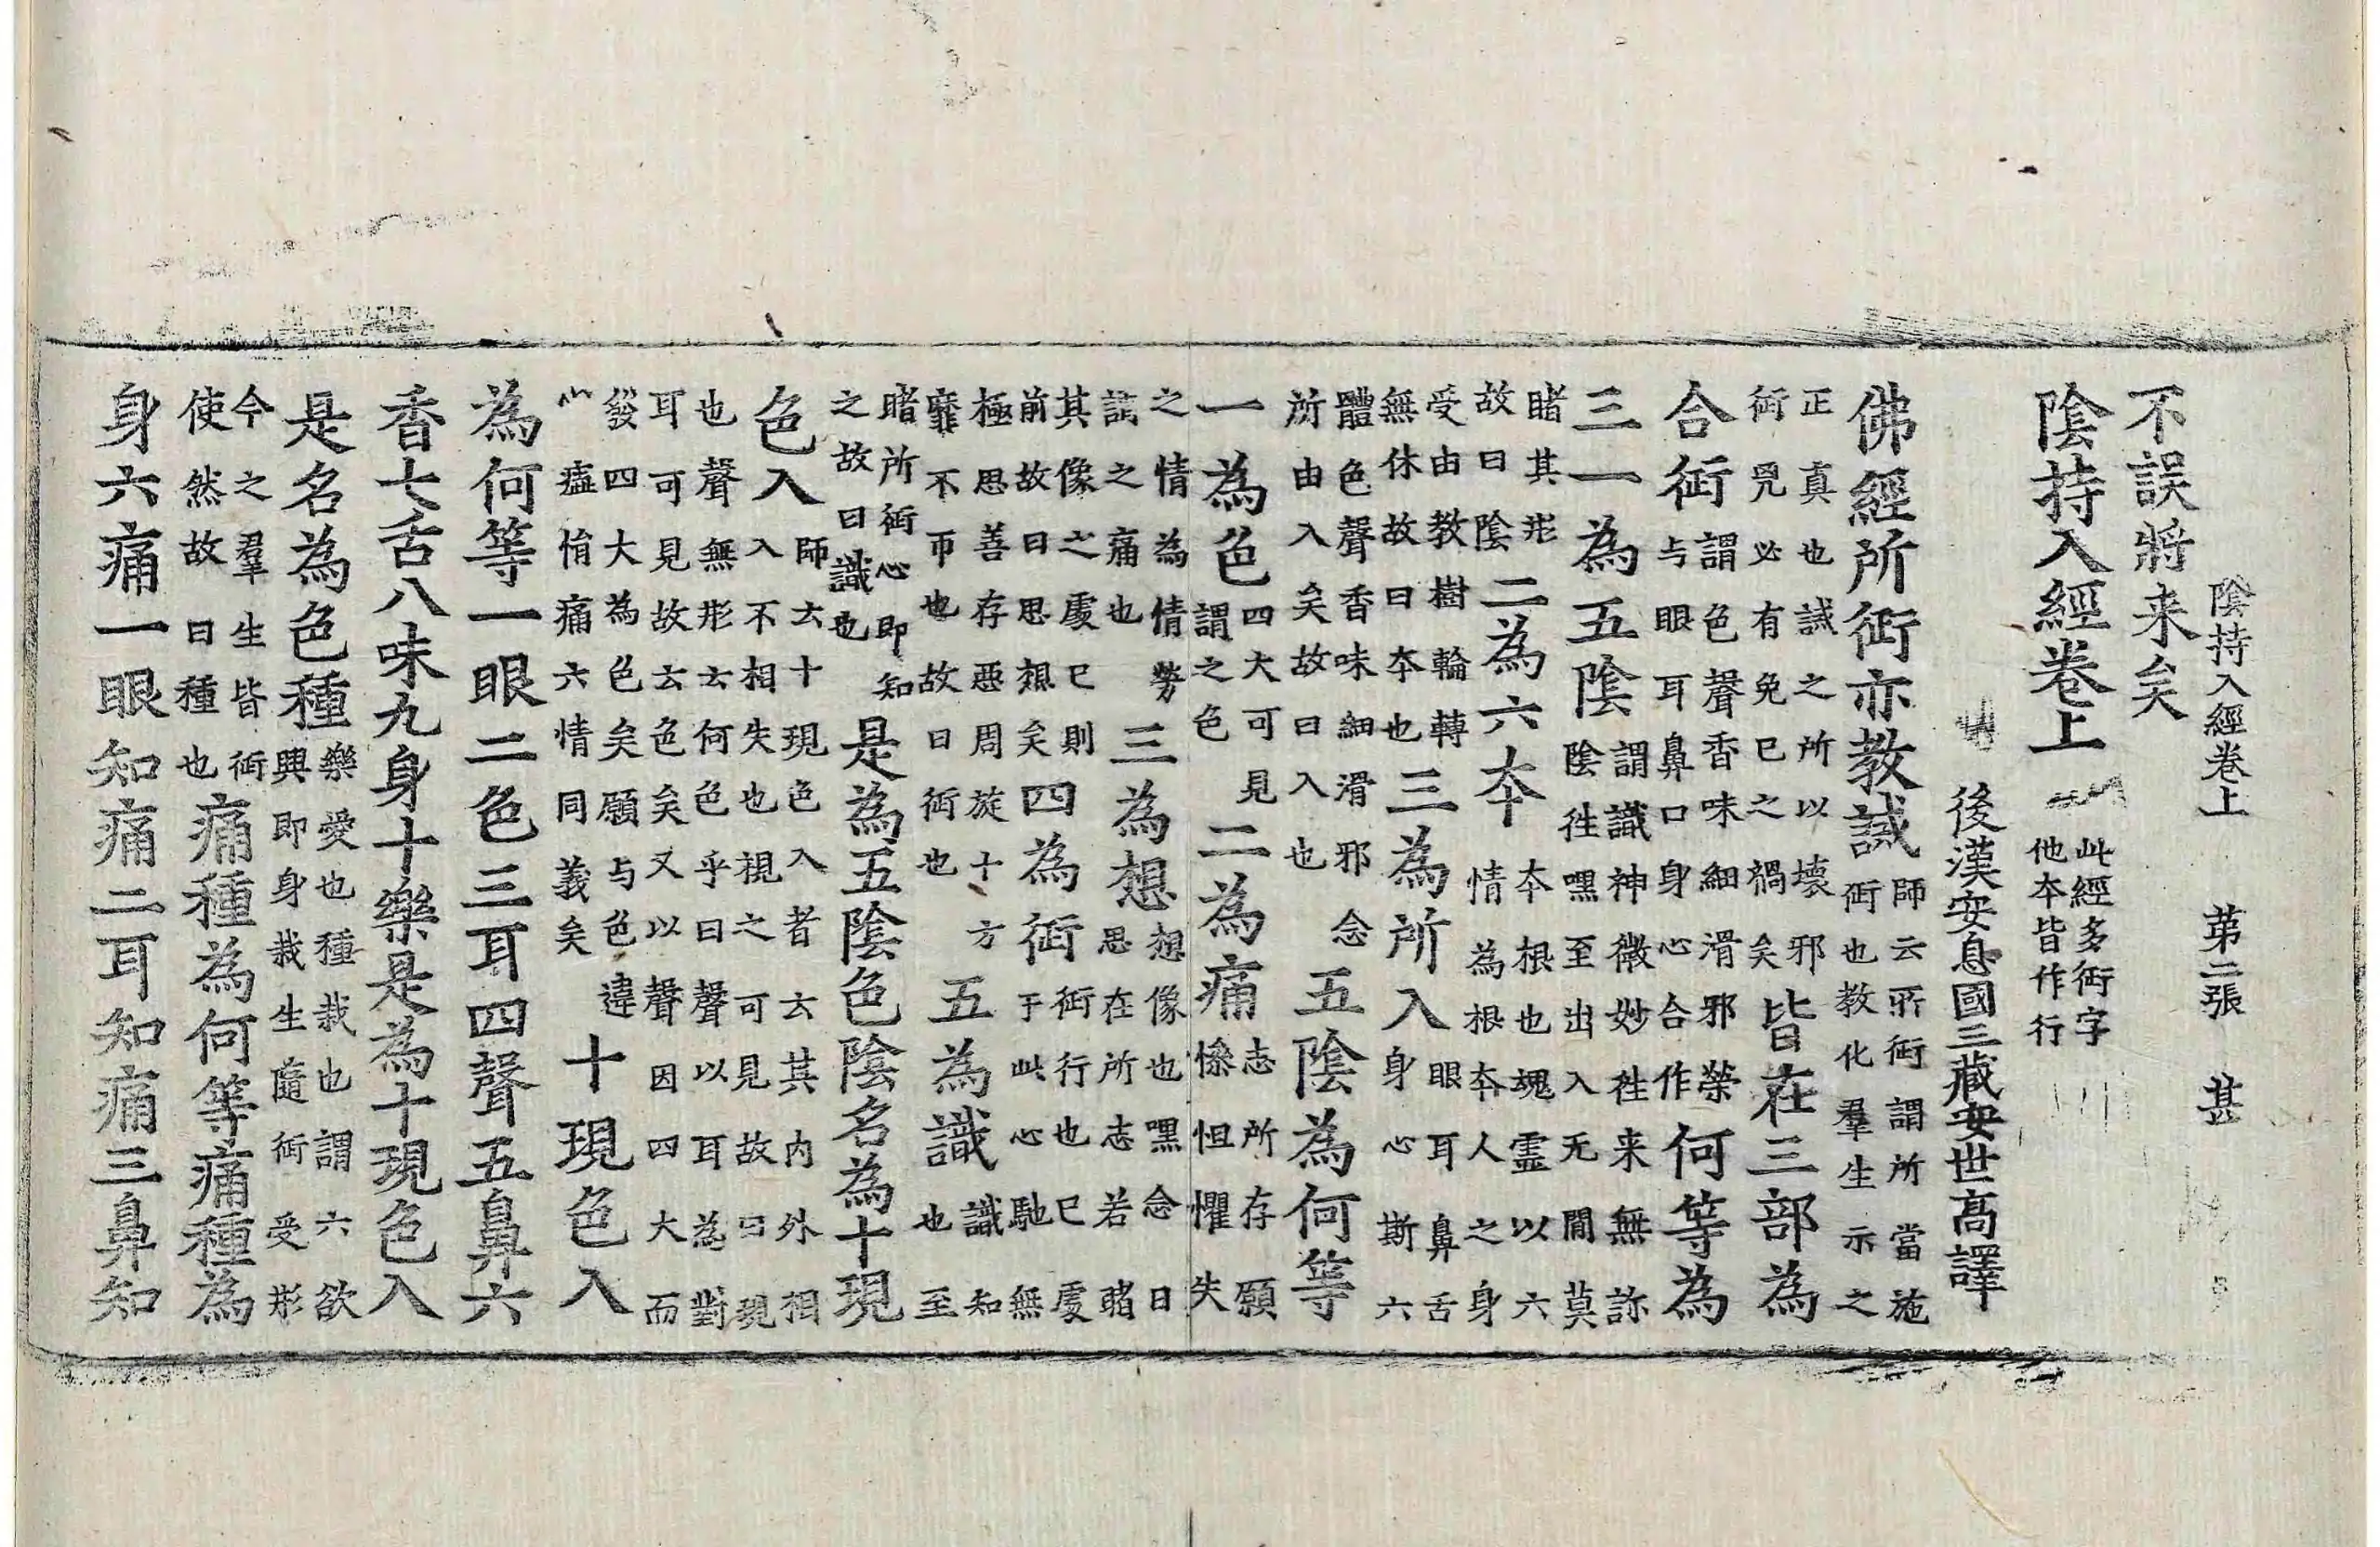 陰持入經卷上 第二張 甚
不誤將来矣
陰持入經卷上
此經多衏字
他夲皆作行
後漢安息國三藏安世髙譯
佛經所衏亦教誡
師云所衏謂所當施
衏也教化羣生示之
正真也誡之所以壞邪
衏兇必有免已之禍矣
皆在三部為
合衏
謂色聲香味細滑邪榮
与眼耳鼻口身心合作
何等為
三一為五陰
謂識神微妙徃来無詠
陰徃嘿至出入无間莫
睹其形
故曰陰
二為六夲
夲根也魂靈以六
情為根夲人之身
受由教樹輪轉
無休故曰夲也
三為所入
眼耳鼻舌
身心斯六
體色聲香味細滑邪念
所由入矣故曰入也
五陰為何等
一為色
四大可見
謂之色
二為痛
志所存願
慘怛懼失
之情為情勞
謂之痛也
三為想
想像也嘿念日
思在所志若睹
其像之處已則
前故曰思想矣
四為衏
衏行也已處
于此心馳無
極思善存惡周旋十方
靡不帀也故曰衏也
五為識
識知
也至
睹所衏心即知
之故曰識也
是為五陰色陰名為十現
色入
師云十現色入者云其内外相
入不相失也視之可見故曰現
也聲無形云何色乎曰聲以耳為對
耳可見故云色矣又以聲因四大而
發四大為色矣願与色違
心㿍悁痛六情同義矣
十現色入
為何等一眼二色三耳四聲五鼻六
香七舌八味九身十樂是為十現色入
是名為色種
樂愛也種栽也謂六欲
興即身栽生隨衏受形
今之羣生皆衏
使然故曰種也
痛種為何等痛種為
身六痛一眼知痛二耳知痛三鼻知